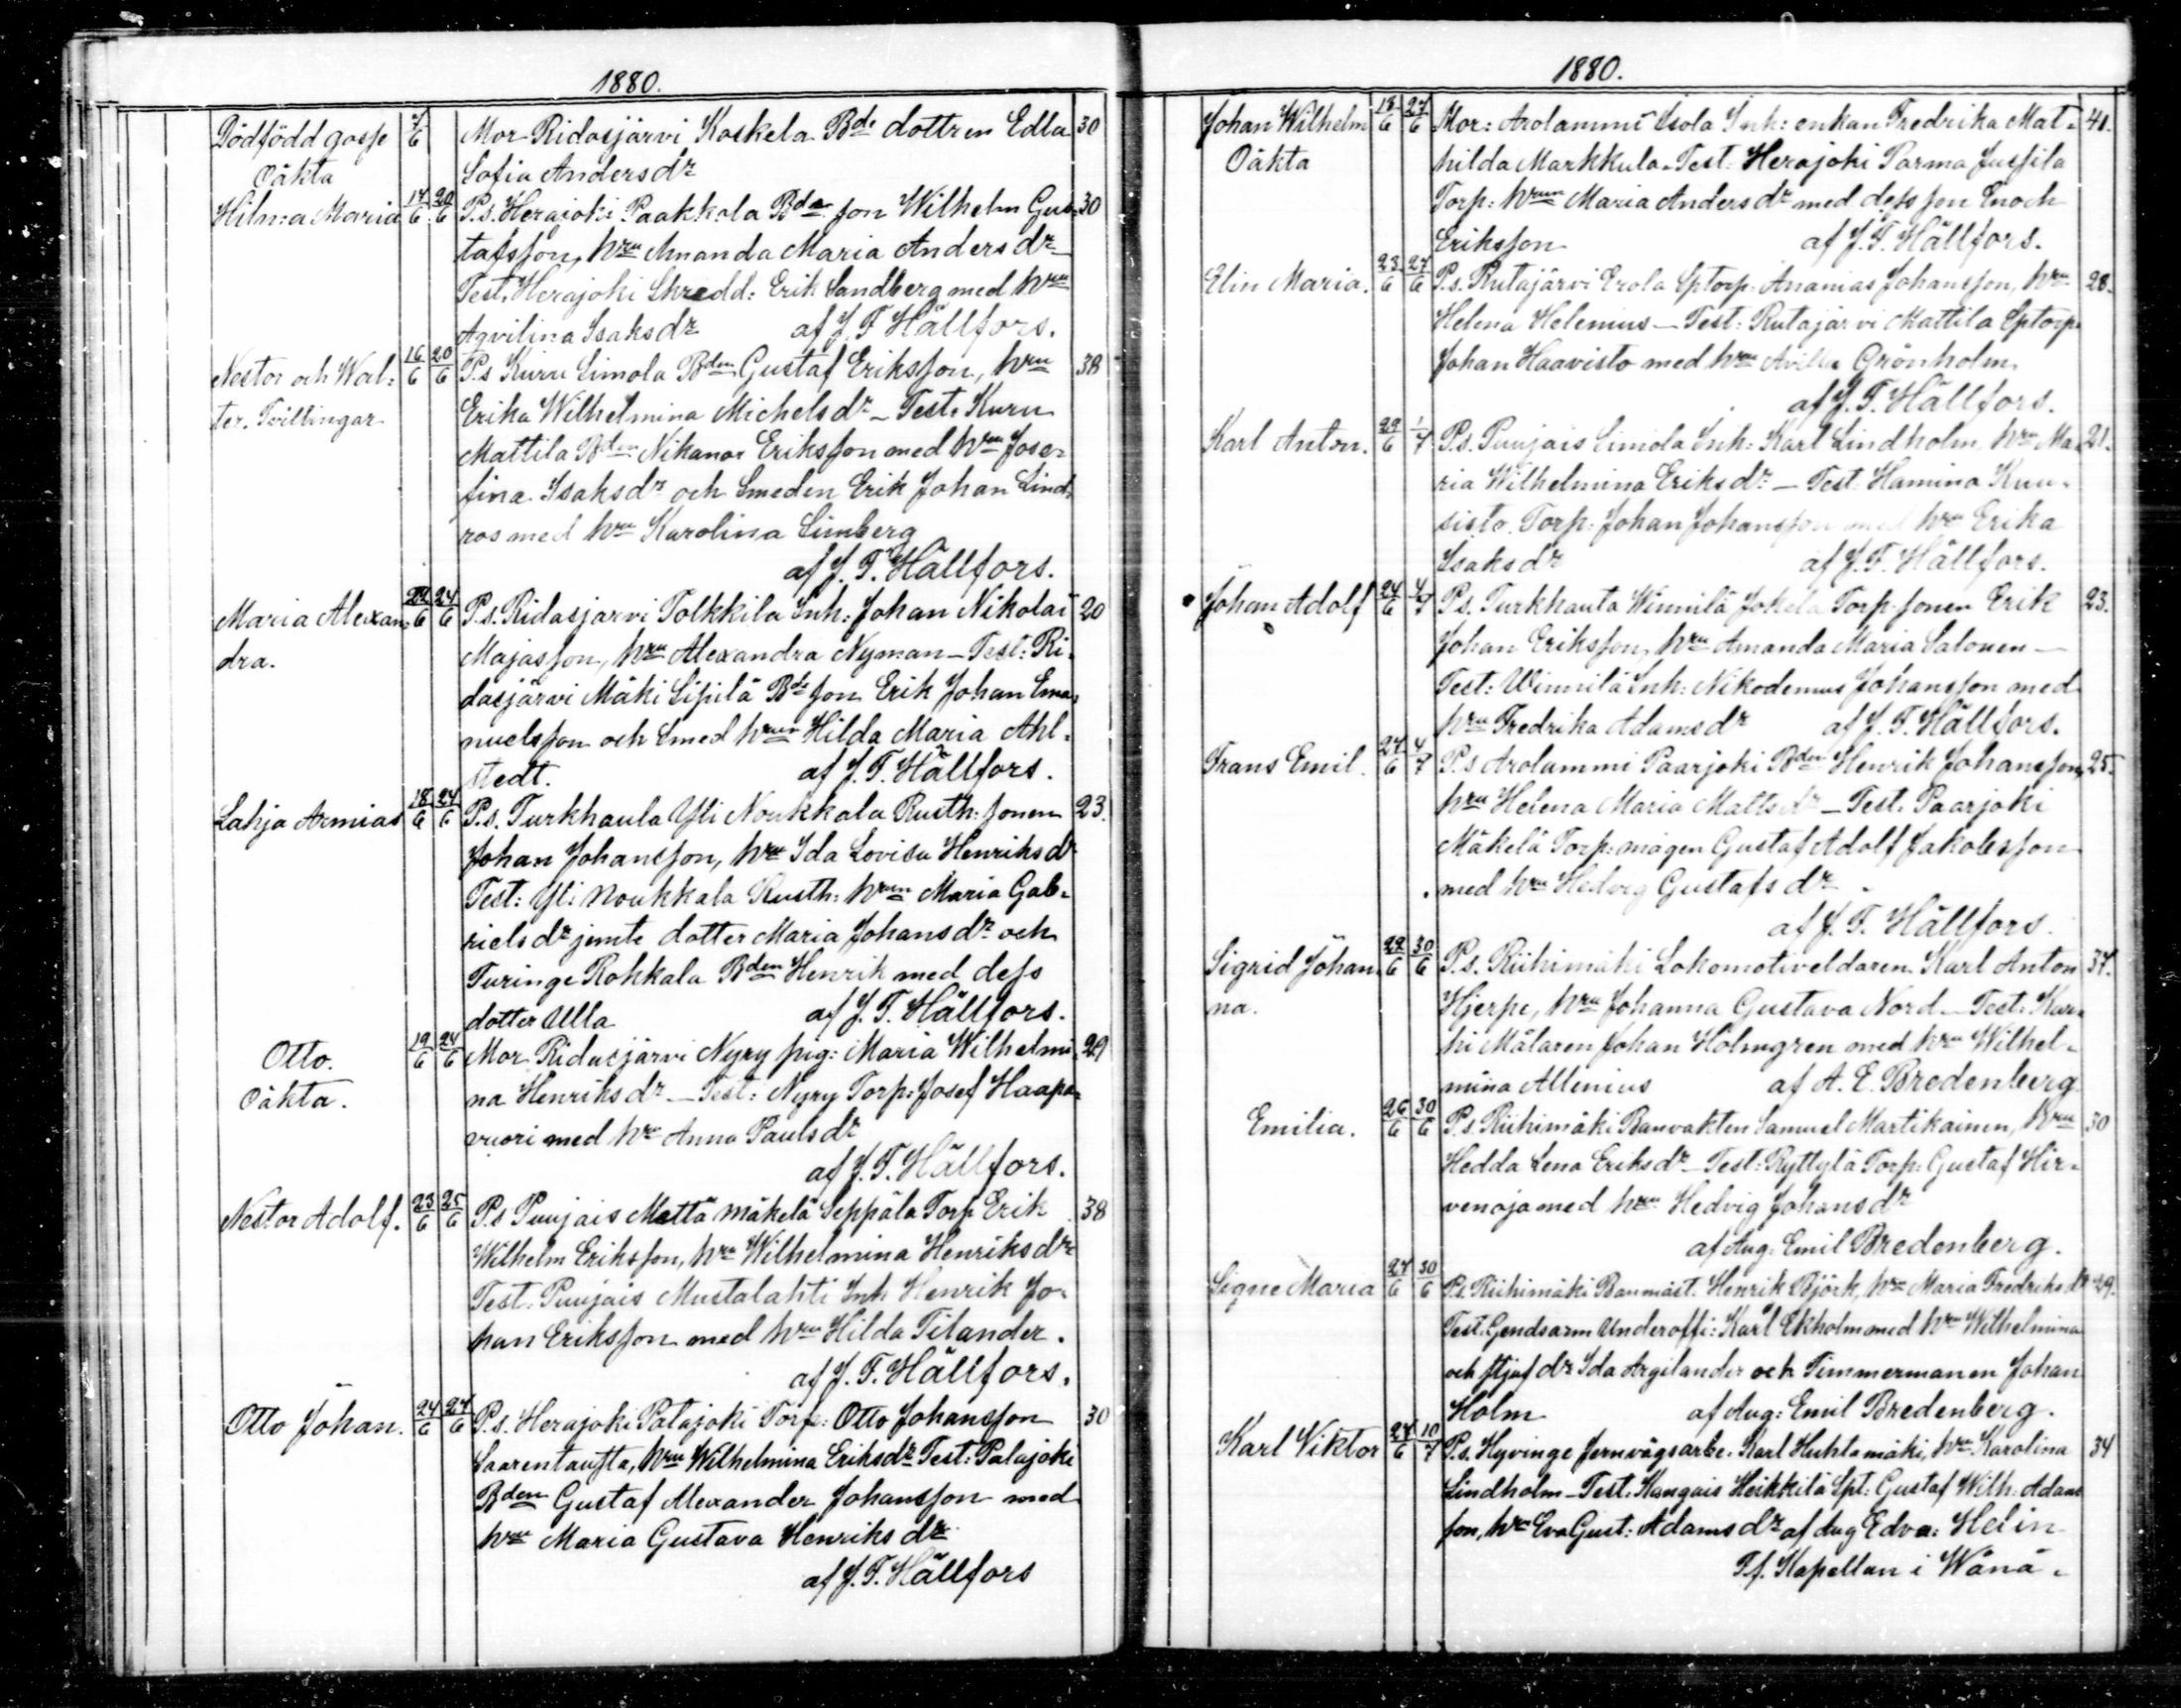 1880.
Dödfödd gosse 4/6 Mor Ridasjärvi Koskela Bde dottren Edla 30
Oäkta Sofia Andersdr
Hilma Maria 17/6 20/6 P.s. Herajoki Paakkola Bde son Wilhelm Gus- 30
tafsson, hru Amanda Maria Andersdr
Test. Herajoki Skredd: Erik Sandberg med hru
Aqvilina Isaksdr af J. F. Hällfors.
Nestor och Wal- 16/6 20/6 P.s Kuru Simola Bden Gustaf Eriksson, hru 38
ter. Tvillingar Erika Wilhelmina Michelsdr - Test. Kuru
Mattila Bden Nikanor Eriksson med hru Jose-
fina Isaksdr och Smeden Erik Johan Lind-
ros med hru Karolina Limberg
af J. F. Hällfors.
Maria Alexan- 22/6 24/6 P.s. Ridasjarvi Tolkkila Inh: Johan Nikolai 20
dra. Majasson, hru Alexandra Nyman - Test: Ri-
dasjärvi Mäki Sipilä Bde son Erik Johan Ema-
nuelsson och Smed hrun Hilda Maria Ahl-
stedt. af J. F. Hällfors.
Lahja Armias 18/6 24/6 P.s. Turkhaula Yli Noukkala Rusth: sonen 23.
Johan Johansson, hru Ida Lovisa Henriksdr
Test: Yli Noukkala Rusth: hrun Maria Gab-
rielsdr jemte dotter Maria Johansdr och
Turinge Rohkala Bden Henrik med dess
dotter Ulla af J. F. Hällfors.
Otto. 19/6 24/6 Mor. Ridasjärvi Nyry pig: Maria Wilhelmi- 29
Oäkta. na Henriksdr - Test: Nyry Torp: Josef Haapa-
vuori med hru Anna Paulsdr
af J. F. Hällfors.
Nestor Adolf. 23/6 25/6 P.s Puujais Mattä mäkelä Seppälä Torp Erik 38
Wilhelm Eriksson, hru Wilhelmina Henriksdr
Test. Puujais Mustalahti Inh Henrik Jo-
han Eriksson med hru Hilda Tilander.
af J. F. Hällfors.
Otto Johan. 24/6 27/6 P.s. Herajoki Palajoki Torp: Otto Johansson 30
Saarentausta, hru Wilhelmina Eriksdr Test: Palajoki
Bden Gustaf Alexander Johansson med
hru Maria Gustava Henriksdr
af J. F. Hällfors
1880.
Johan Wilhelm 18/6 27/6 Mor: Arolammi Isola Inh: enkan Fredrika Mat- 41.
Oäkta hilda Markkula - Test: Herajoki Parma Jussila
Torp: hrun Maria Andersdr med dess son Enoch
Eriksson af J. F. Hällfors.
Elin Maria. 23/6 27/6 P.s. Rutajärvi Erola Sptorp. Ananias Johansson, hru 28.
Helena Helenius - Test: Rutajärvi Mattila Sptorp.
Johan Haavisto med hru Avilla Grönholm
af J. F. Hällfors.
Karl Anton. 29/6 1/7 P.s. Puujais Simola Inh: Karl Lindholm, hru Ma- 21.
ria Wilhelmina Eriksdr - Test Hamina Kuu-
sisto. Torp: Johan Johansson med hru Erika
Isaksdr af J. F. Hällfors.
Johan Adolf 24/6 4/7 P.s. Turkhauta Winnilä Jokela Torp: sonen Erik 23.
Johan Eriksson, hru Amanda Maria Salonen -
Test: Winnilä Inh: Nikodemus Johansson med
hru Fredrika Adamsdr af J. F. Hällfors.
Frans Emil. 27/6 4/7 P.s Arolammi Paarjoki Bden Henrik Johansson, 25.
hru Helena Maria Mattsdr - Test. Paarjoki
Mäkelä Torp: mågen Gustaf Adolf Jakobsson
med hru Hedvig Gustafsdr
af J. F. Hällfors.
Sigrid Johan- 22/6 30/6 P.s. Riihimäki Lokomotiveldaren Karl Anton 37.
na. Hjerpe, hru Johanna Gustava Nord - Test: Kar-
hi Målaren Johan Holmgren med hru Wilhel-
mina Allenius af A. E. Bredenberg
Emilia. 26/6 30/6 P.s. Riihimäki Banvakten Samuel Martikainen, hru 30
Hedda Lena Eriksdr - Test: Ryttylä Torp: Gustaf Hir-
venoja med hru Hedvig Johansdr
af Aug. Emil Bredenberg.
Signe Maria 27/6 30/6 P.s. Riihimäki Banmäst. Henrik Björk, hru Maria Fredriksdr 29.
Test: Gendsarm Underoffi: Karl Ekholm med hru Wilhelmina
och stjufdr Ida Argilander och Timmermanen Johan
Holm af Aug: Emil Bredenberg.
Karl Viktor 27/6 10/7 P.s. Hyvinge Jernvägsarbe. Karl Huhtamäki, hru Karolina 34
Lindholm - Test: Kangais Heikkilä Spt: Gustaf Wilh: Adams
son, hru Eva Gust: Adamsdr af Aug Edva: Helin
T.f. Kapellan i Wånå.